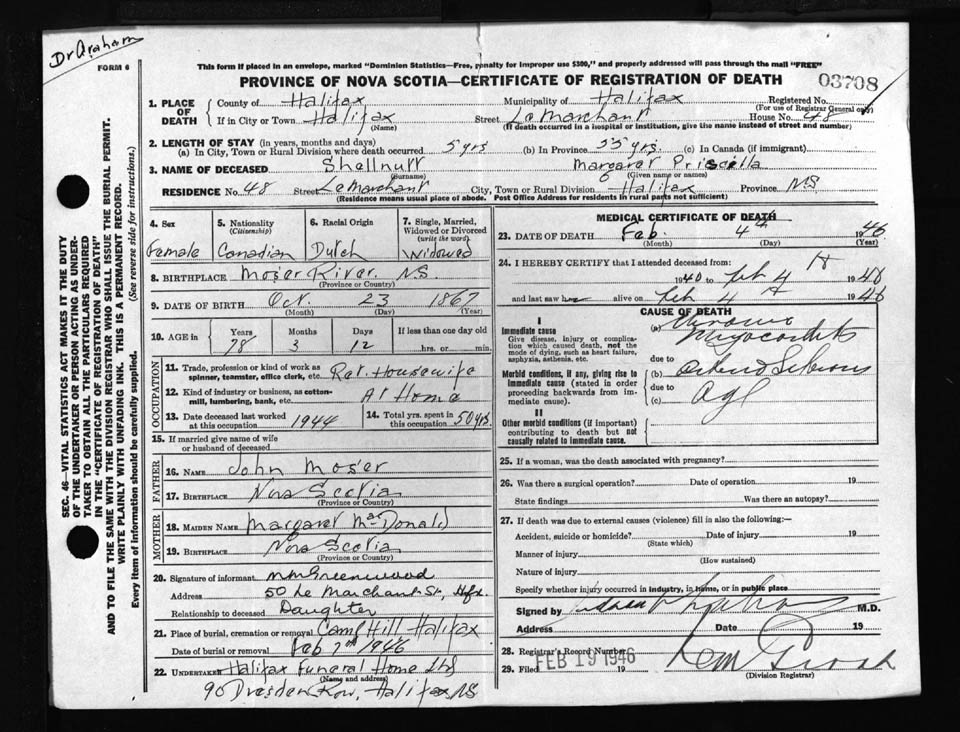 Dr Graham
FORM 6
This form if placed in an envelope, marked "Dominion Statistics—Free, penalty for improper use $300," and properly addressed will pass through the mail "FREE"
PROVINCE OF NOVA SCOTIA—CERTIFICATE OF REGISTRATION OF DEATH
03708
1. PLACE OF DEATH
County of Halifax Municipality of Halifax Registered No.
(For use of Registrar General only)
If in City or Town Halifax Street LeMarchant House No. 48
(Name) (If death occurred in a hospital or institution, give the name instead of street and number)
2. LENGTH OF STAY (in years, months and days)
(a) In City, Town or Rural Division where death occurred 5 yrs (b) In Province 55 yrs. (c) In Canada (if immigrant)
3. NAME OF DECEASED Shellnutt Margaret Priscilla
(Surname) (Given name or names)
RESIDENCE No. 48 Street LeMarchant City, Town or Rural Division Halifax Province NS
(Residence means usual place of abode. Post Office Address for residents in rural parts not sufficient)
4. Sex Female
5. Nationality (Citizenship) Canadian
6. Racial Origin Dutch
7. Single, Married, Widowed or Divorced (write the word) Widowed
8. BIRTHPLACE Moser River. NS.
(Province or Country)
9. DATE OF BIRTH Oct. 23 1867
(Month) (Day) (Year)
10. AGE in Years Months Days If less than one day old
78 3 12 hrs. or min.
OCCUPATION
11. Trade, profession or kind of work as spinner, teamster, office clerk, etc. Ret. Housewife
12. Kind of industry or business, as cotton-mill, lumbering, bank, etc. At Home
13. Date deceased last worked at this occupation 1944
14. Total yrs. spent in this occupation 50 yrs.
15. If married give name of wife or husband of deceased
FATHER
16. NAME John Moser
17. BIRTHPLACE Nova Scotia
(Province or Country)
MOTHER
18. MAIDEN NAME Margaret McDonald
19. BIRTHPLACE Nova Scotia
(Province or Country)
20. Signature of informant Greenwood
Address 50 Le Marchant St, Hfx
Relationship to deceased Daughter
21. Place of burial, cremation or removal Camp Hill Halifax
Date of burial or removal Feb 7th 1946
22. UNDERTAKER Halifax Funeral Home Ltd
(Name and address)
90 Dresden Row, Halifax, NS
MEDICAL CERTIFICATE OF DEATH
23. DATE OF DEATH Feb. 4th 1946
(Month) (Day) (Year)
24. I HEREBY CERTIFY that I attended deceased from:
1940 to Feb 4th 1946
and last saw her alive on Feb 4th 1946
CAUSE OF DEATH
I
Immediate cause
Give disease, injury or complication which caused death, not the mode of dying, such as heart failure, asphyxia, asthenia, etc.
(a) Chronic Myocarditis
due to
Morbid conditions, if any, giving rise to immediate cause (stated in order proceeding backwards from immediate cause).
(b)
due to
(c) Age
II
Other morbid conditions (if important) contributing to death but not causally related to immediate cause.
25. If a woman, was the death associated with pregnancy?
26. Was there a surgical operation? Date of operation 19
State findings Was there an autopsy?
27. If death was due to external causes (violence) fill in also the following:—
Accident, suicide or homicide? Date of injury 19
(State which)
Manner of injury
(How sustained)
Nature of injury
Specify whether injury occurred in industry, in home, or in public place
Signed by M.D.
Address Date 19
28. Registrar's Record Number
29. Filed FEB 19 1946 19
(Division Registrar)
SEC. 46—VITAL STATISTICS ACT MAKES IT THE DUTY
OF THE UNDERTAKER OR PERSON ACTING AS UNDER-
TAKER TO OBTAIN ALL THE PARTICULARS REQUIRED
IN THE "CERTIFICATE OF REGISTRATION OF DEATH"
AND TO FILE THE SAME WITH THE DIVISION REGISTRAR WHO SHALL ISSUE THE BURIAL PERMIT.
WRITE PLAINLY WITH UNFADING INK. THIS IS A PERMANENT RECORD.
Every item of information should be carefully supplied. (See reverse side for instructions.)